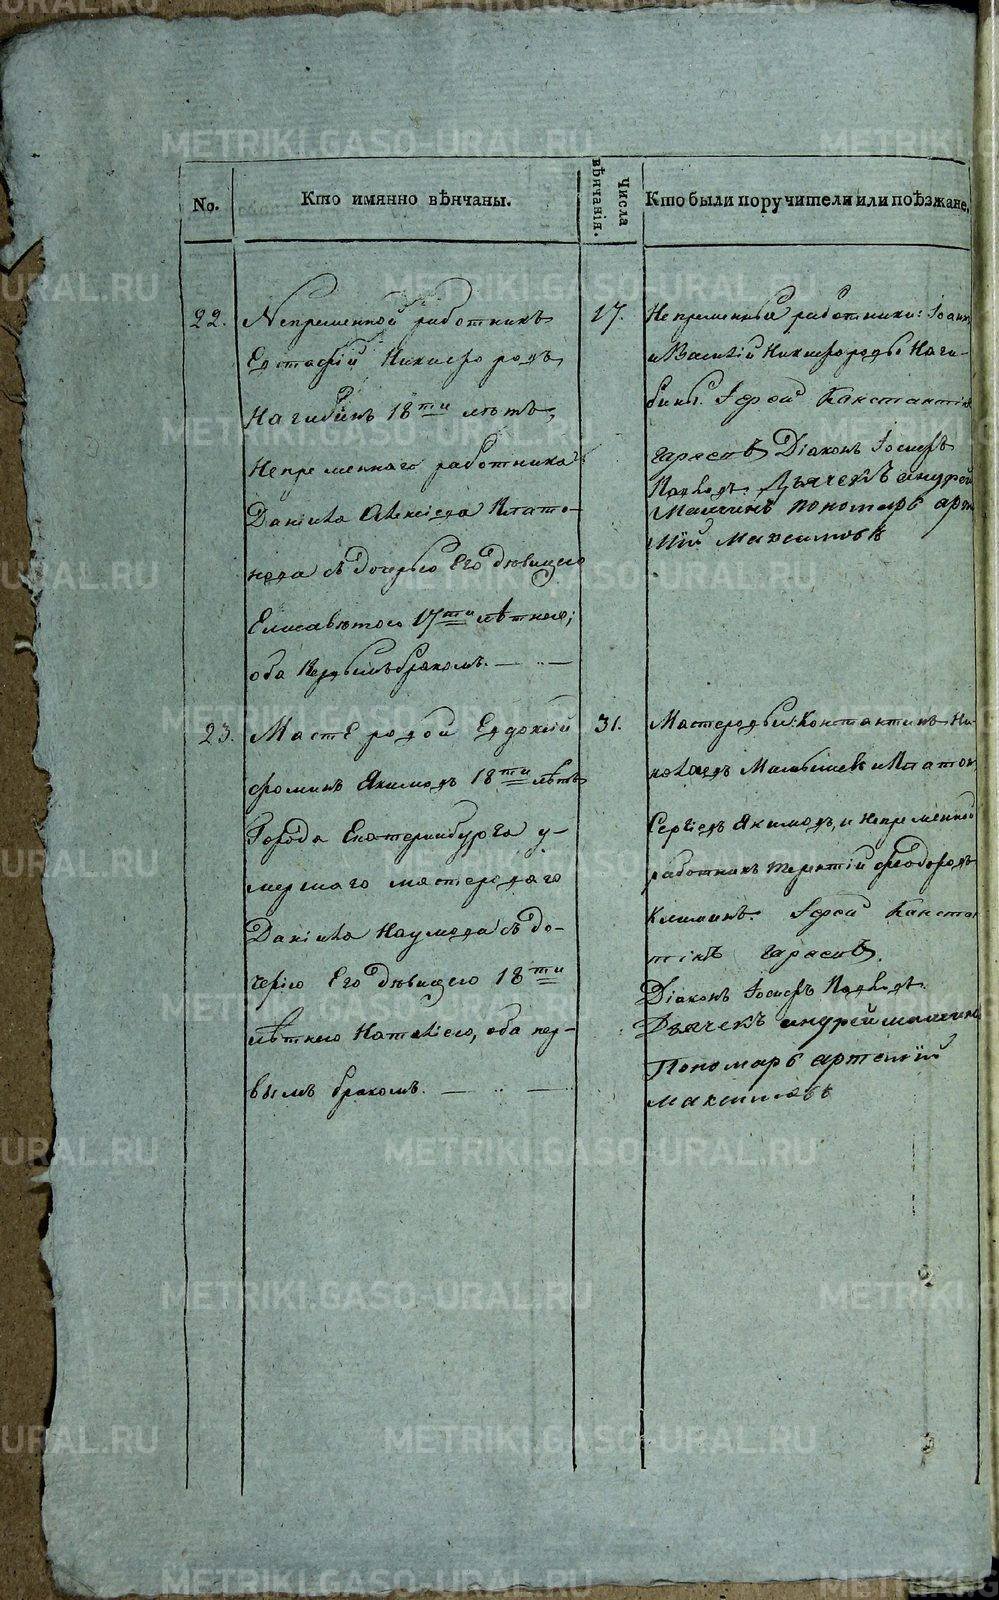 No.
Кто имянно вѣнчаны.
Числа вѣнчанія.
Кто были поручители или поѣзжане.
22.
Непременной работникъ
Евстафій Никифоровъ
Нагибинъ 18ти лѣтъ,
Непременнаго работника
Даніила Алексѣева Плато-
нова съ дочерью Его дѣвицею
Елисаветою 17ти лѣтнею;
оба первымъ бракомъ.
17.
Непременныя работники: Іоаннъ
и Василій Никифоровы Наги-
бины. Іерей Констант
Діаконъ Іосифъ
Дьячекъ андрей
пономарь арте
мій максимовъ
23.
Мастеровой Евдокий
фоминъ Якимовъ 18ти лѣтъ
Города Екатеринбурга у-
мершаго мастероваго
Даніила Наумова съ до-
черію Его дѣвицею 18ти
лѣтнею Наталіею, оба пер-
вымъ бракомъ.
31.
Мастеровыя: Константинъ Ни-
колаевъ Малышевъ и Платон
Сергѣевъ Якимовъ, и Непременной
работникъ терентій феодоровъ
Климинъ. Іерей Конста
тинъ
Діаконъ Іосифъ
Дьячекъ андрей
Пономарь артемій
максимовъ
METRIKI.GASO-URAL.RU